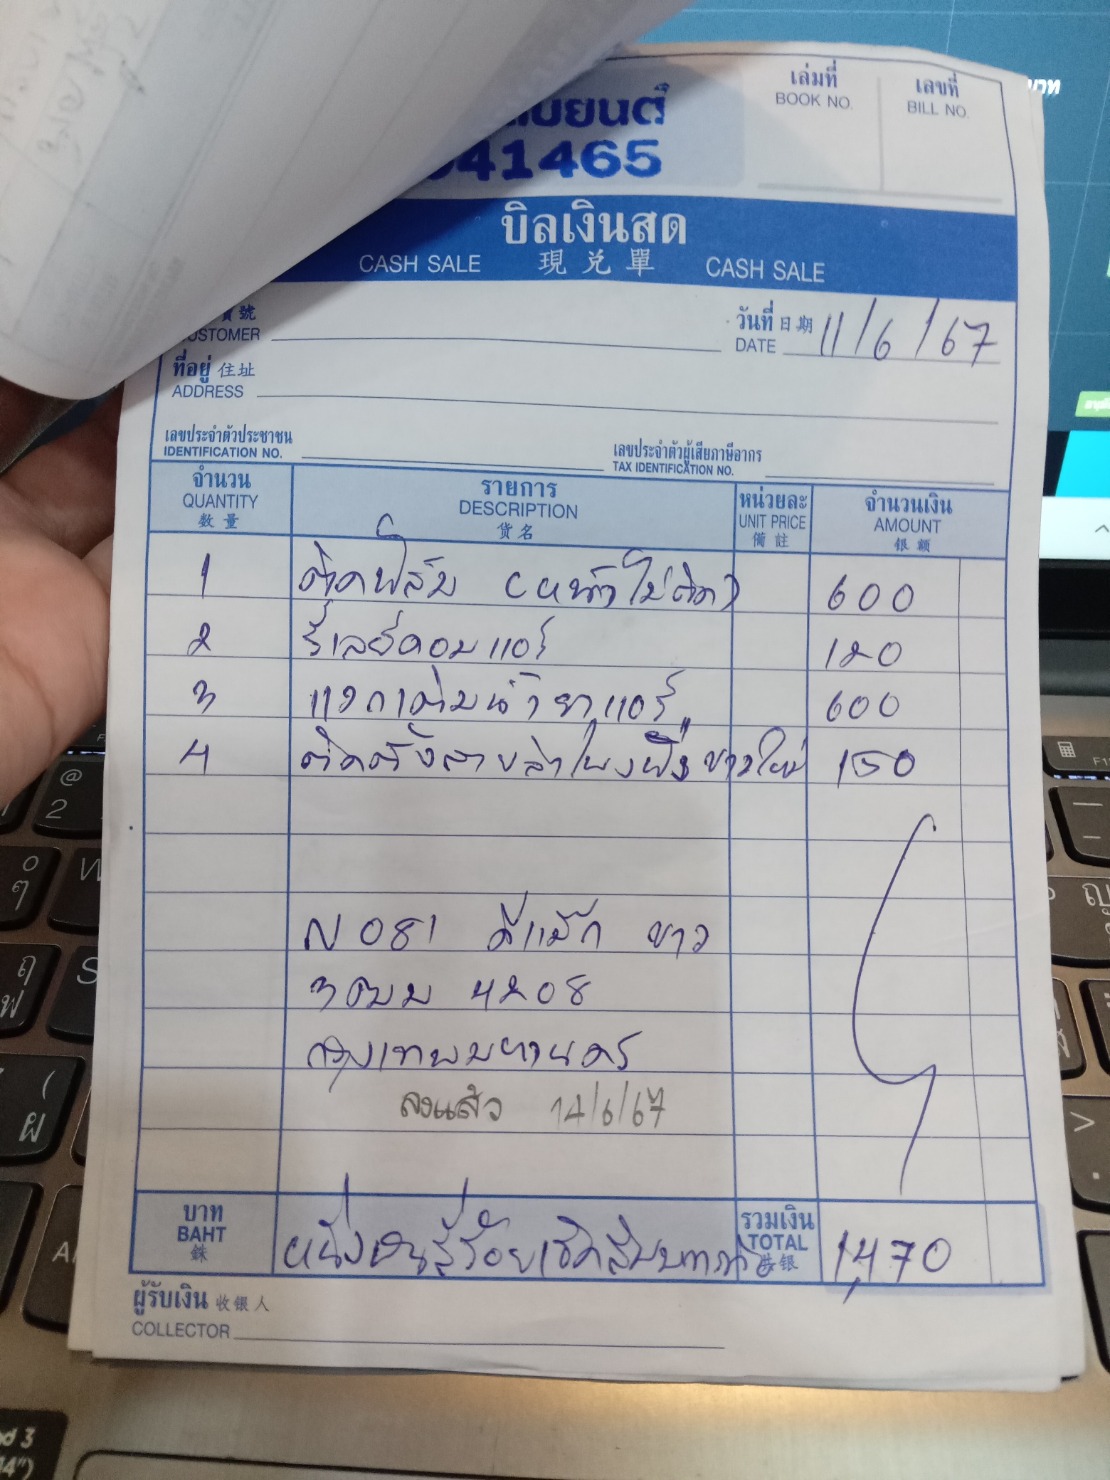 เล่มที่ เลขที่
BOOK NO. BILL NO.
บยนต์
41465
บิลเงินสด
CASH SALE 現兑單 CASH SALE
號 วันที่ 日期 11/6/67
USTOMER DATE
ที่อยู่ 住址
ADDRESS
เลขประจำตัวประชาชน เลขประจำตัวผู้เสียภาษีอากร
IDENTIFICATION NO. TAX IDENTIFICATION NO.
จำนวน รายการ หน่วยละ จำนวนเงิน
QUANTITY DESCRIPTION UNIT PRICE AMOUNT
数量 货名 備註 银额
1 ติดฟิล์ม (หน้าไม่ติด) 600
2 รีเลย์คอมแอร์ 120
3 แวคเติมน้ำยาแอร์ 600
4 ติดตั้งสายลำโพงฝั่งขวาใหม่ 150
N081 ดีแม็ก ขาว
3ฒฒ 4208
กรุงเทพมหานคร
ลงแล้ว 14/6/67
บาท รวมเงิน
BAHT หนึ่งพันสี่ร้อยเจ็ดสิบบาท TOTAL 1,470
銖 银
ผู้รับเงิน 收银人
COLLECTOR
@
2